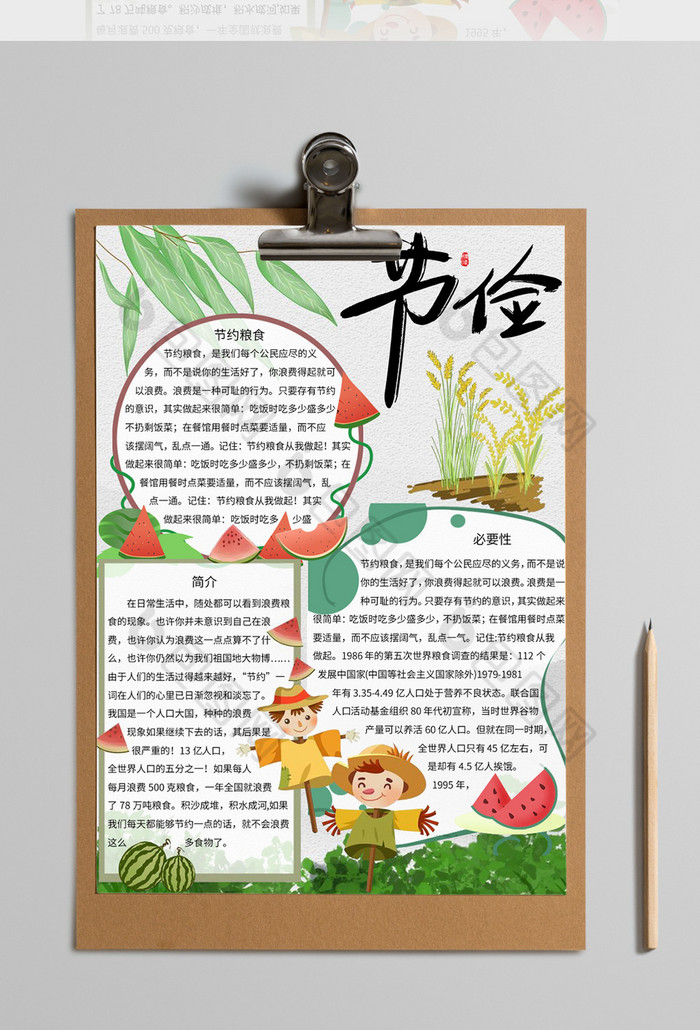 节俭
节约粮食
节约粮食，是我们每个公民应尽的义
务，而不是说你的生活好了，你浪费得起就可
以浪费。浪费是一种可耻的行为。只要存有节约
的意识，其实做起来很简单：吃饭时吃多少盛多少
不扔剩饭菜；在餐馆用餐时点菜要适量，而不应
该摆阔气，乱点一通。记住：节约粮食从我做起！其实
做起来很简单：吃饭时吃多少盛多少，不扔剩饭菜；在
餐馆用餐时点菜要适量，而不应该摆阔气，乱
点一通。记住：节约粮食从我做起！其实
做起来很简单：吃饭时吃多 少盛
必要性
节约粮食，是我们每个公民应尽的义务，而不是说
你的生活好了，你浪费得起就可以浪费。浪费是一
种可耻的行为。只要存有节约的意识，其实做起来
很简单：吃饭时吃多少盛多少，不扔剩饭菜；在餐馆用餐时点菜要
适量，而不应该摆阔气，乱点一气。记住:节约粮食从我
做起。1986 年的第五次世界粮食调查的结果是：112 个
发展中国家(中国等社会主义国家除外)1979-1981
年有 3.35-4.49 亿人口处于营养不良状态。联合国
人口活动基金组织 80 年代初宣称，当时世界谷物
产量可以养活 60 亿人口。但就在同一时期，
全世界人口只有 45 亿左右，可
是却有 4.5 亿人挨饿。
1995 年，
简介
在日常生活中，随处都可以看到浪费粮
食的现象。也许你并未意识到自己在浪
费，也许你认为浪费这一点点算不了什
么，也许你仍然以为我们祖国地大物博……
由于人们的生活过得越来越好，“节约”一
词在人们的心里已日渐忽视和淡忘了。
我国是一个人口大国，种种的浪费
现象如果继续下去的话，其后果是
很严重的！13 亿人口，
全世界人口的五分之一！如果每人
每月浪费 500 克粮食，一年全国就浪费
了 78 万吨粮食。积沙成堆，积水成河,如果
我们每天都能够节约一点的话，就不会浪费
这么 多食物了。